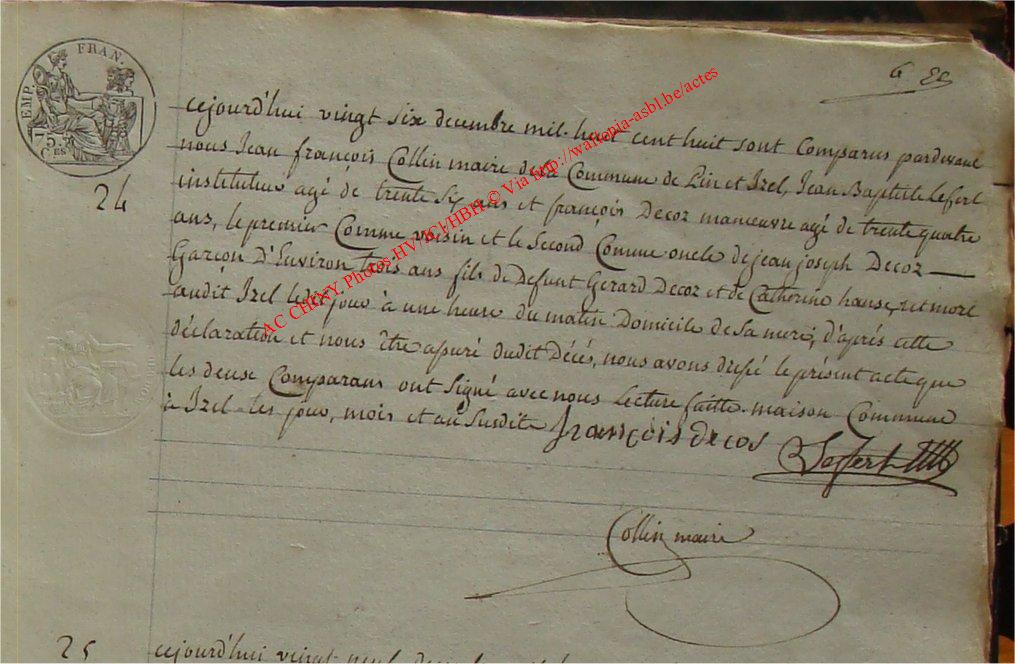 EMP. FRAN.
75
CES
24
cejourd'hui vingt six decembre mil-huit cent huit sont Comparus pardevant
nous Jean françois Collin maire de la Commune de Pin et Izel, Jean Baptiste Lefert
instituteur agé de trente Six ans et françois Decoz manœuvre agé de trente quatre
ans, le premier Comme voisin et le Second Comme oncle de jean joseph Decoz
Garcon D'Environ trois ans fils de Defunt Gerard Decoz et de Catherine hause, est mort
audit Izel ledit jour à une heure du matin Domicile de Sa mere, d'après cette
déclaration et nous être assuré dudit Décés, nous avons dressé le présent acte que
les deuse Comparans ont Signé avec nous Lecture faitte. maison Commune
à Izel les jour, mois et an Susdite françois decos
Lefert
Collin maire
25 cejourd'hui vingt neuf
AC CHINY, Photos HV/JCJ/HBH © Via http://wallonia-asbl.be/actes